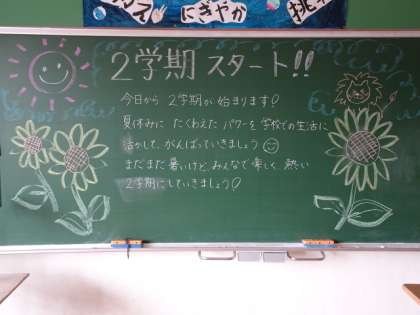 にぎやか
2学期 スタート!!
今日から 2学期が始まります!
夏休みに たくわえた パワーを 学校での生活に
活かして、がんばっていきましょう
まだまだ 暑いけど、みんなで 楽しく 熱い
2学期にしていきましょう!